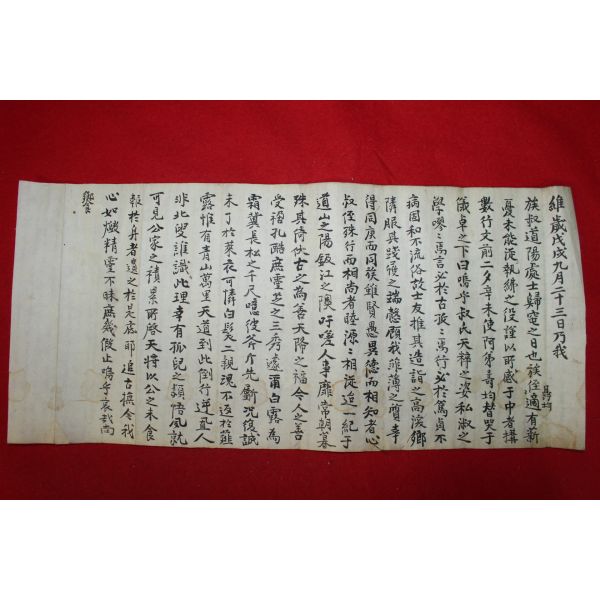 維歲戊戌九月二十三日乃我
族叔道陽處士歸窆之日也族侄昌均適有薪
憂未能從執紼之役謹以所感于中者搆
數行文前二夕辛未使阿弟壽均替哭于
儀卓之下曰嗚乎叔氏天粹之姿私淑之
學嘐嘐爲言必於古孜孜爲行必於篤貞不
病固和不流俗故士友推其造詣之高後鄉
隣服其踐履之端慤顧我菲薄之質幸
得同庚而同族雖賢愚異德而相知者心
叔侄殊行而相尚者睦源源相從迨一紀于
道山之陽鈑江之隩吁嗟人事靡常朝暮
殊其倚伏古之爲善天降之福今人之善
受禍孔酷庶靈芝之三秀遽爾白露爲
霜冀長松之千尺噫彼斧斤先斸況復誠
未了於萊衣可憐白髮二親魂不返於薤
露惟有靑山萬里天道到此倒行逆置人
非北叟誰識此理幸有孤兒之穎悟夙就
可見公家之積累所啓天將以公之未食
報於身者遺之於是庶耶追古撫今我
心如燬精靈不昧庶幾假止嗚乎哀哉尚
饗